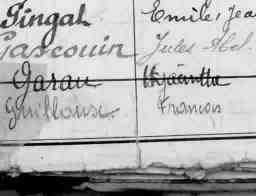 Pingal Emile, Jea
Gascouin Jules Abel.
Garau Hyacinthe
Guillouse François